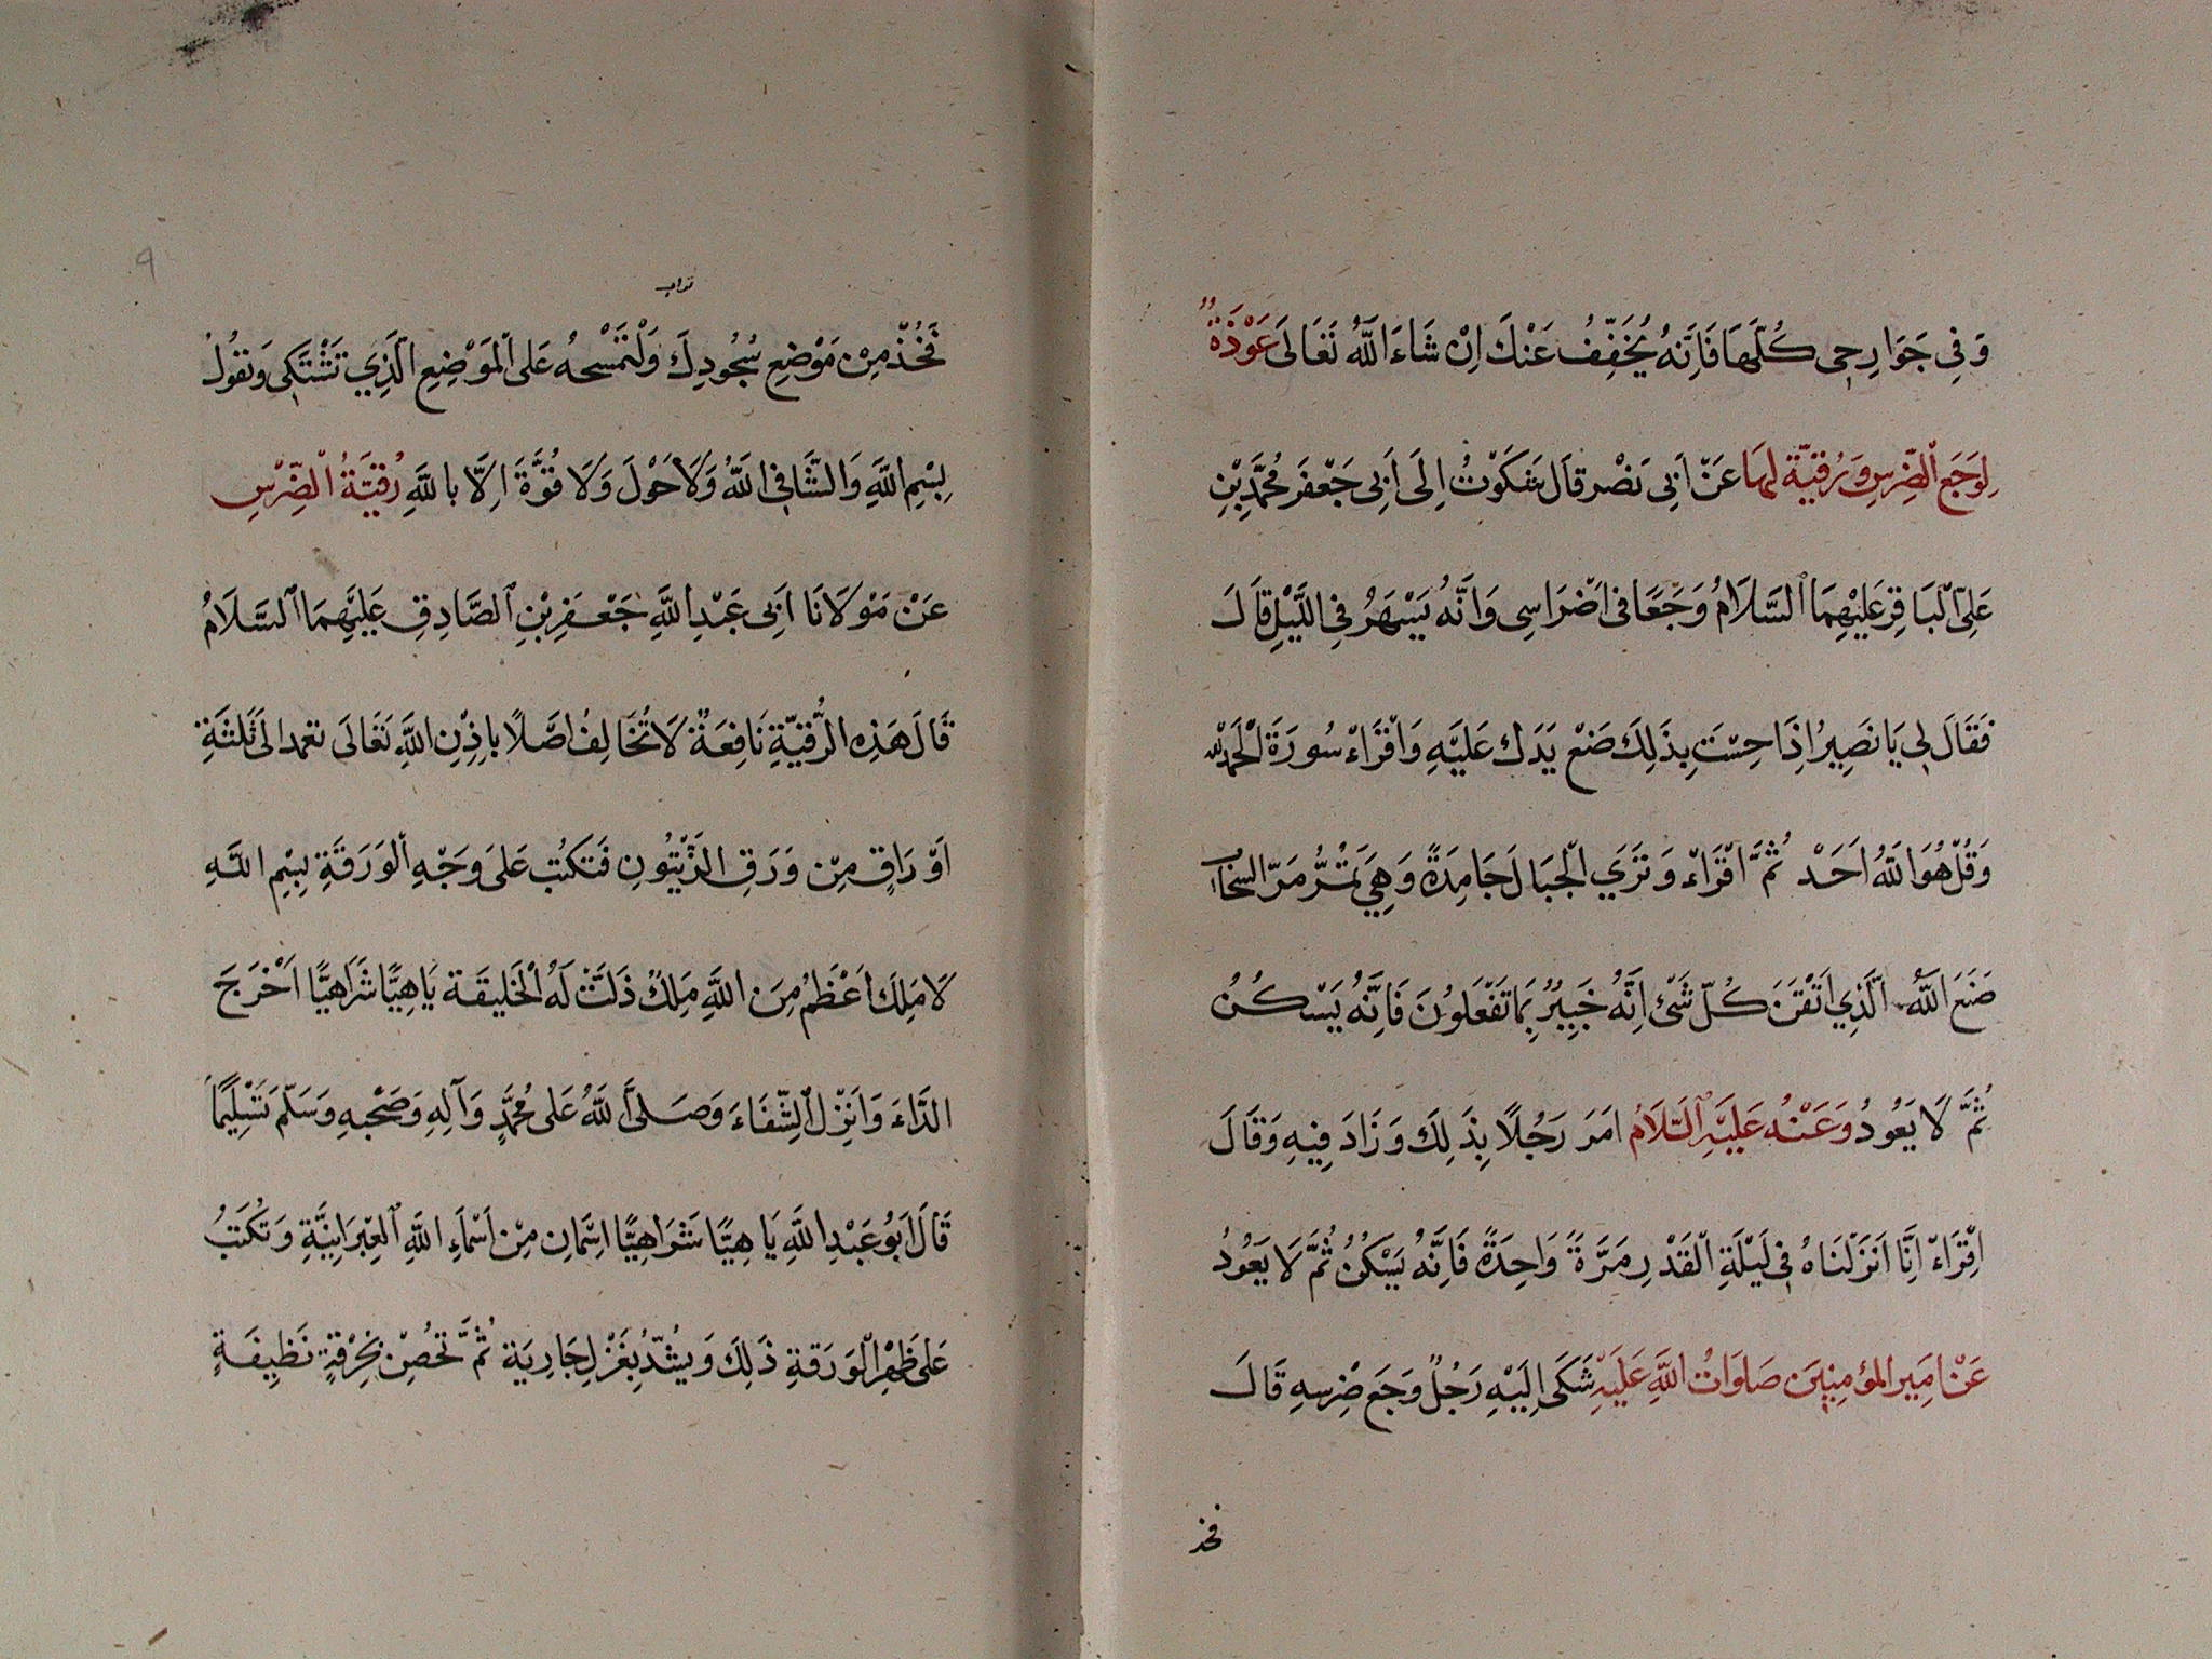 وَفِي جَوَارِحِي كُلِّهَا فَإِنَّهُ يُخَفِّفُ عَنْكَ اِنْ شَاءَ اللَّهُ تَعَالَى عَوْذَةٌ
لِوَجَعِ الضِّرْسِ وَرُقِيَّة لِهَا عَنْ اَبِى نَصْر قَالَ شَكَوْتُ اِلَى اَبِى جَعْفَر مُحَمَّدِ بْنِ
عَلِىّ الْبَاقِرِ عَلَيْهِمَا السَّلَامُ وَجَعًا فى اَضْرَاسِى وَاَنَّهُ يَسْهَرُ فِى اللَّيْلِ قَالَ
فَقَالَ لِى يَا نَصِيرُ اِذَا حِسْتَ بِذَلِكَ ضَعْ يَدَك عَلَيْهِ وَاقْرَاءْ سُورَةَ الْحَمْدُ لله
وَقُلْ هُوَ اللَّهُ اَحَدْ ثُمَّ اقْرَاءْ وَتَرَي الْجِبَالَ جَامِدَةً وَهِيَ تَمُرُّ مَرَّ السحَاب
صَنَعَ اللَّهُ الَّذِي اَتْقَنَ كُلّ شَىْءٍ اِنَّهُ خَبِيرٌ بِمَا تَفْعَلُونَ فَاِنَّهُ يَسْكُنُ
ثُمَّ لَا يَعُودُ وَعَنْهُ عَلَيْهِ السَّلَامُ امَرَ رَجُلًا بِذَلِكَ وَزَادَ فِيهِ وَقَالَ
اِقْرَاءْ اِنَّا اَنزَلْنَاهُ فِى لَيْلَةِ الْقَدْرِ مَرَّةً وَاحِدَةً فَاِنَّهُ يَسْكُنُ ثُمَّ لَا يَعُودُ
عَنْ اَمِير المؤمِنِينَ صَلَوَاتُ اللَّهِ عَلَيْهِ شَكَى اِلَيْهِ رَجُلٌ وَجَع ضِرْسِهِ قَالَ
فخذ
فَخُذْ مِنْ مَوْضِعِ سُجُودِكَ وَلْتَمْسَحْهُ عَلى الْمَوْضِعِ الَّذِي تَشْتَكِى وَتَقُولُ
بِسْمِ اللَّهِ وَالشَّافِى اللَّهُ وَلَا حَوْلَ وَلَا قُوَّةَ اِلَّا بِاللَّهِ رُقِيَةُ الضّرْسِ
عَنْ مَوْلَانَا اَبِى عَبْدِ اللَّهِ جَعْفَرِ بْنِ الصَّادِقِ عَلَيْهِمَا السَّلَامُ
قَالَ هَذِهِ الرُّقِيَّةِ نَافِعَةٌ لَا تُخَالِفُ اصْلًا بِاِذْنِ اللَّهِ تَعَالَى تعمد الى ثَلثَةِ
اَوْرَاقٍ مِنْ وَرَقِ الزَّيْتُونِ فَتَكتُب عَلَى وَجْهِ الْوَرَقَةِ بِسْمِ اللَّهِ
لَا مَلِكَ اَعْظَمُ مِنَ اللَّهِ مَلِكٌ ذَلَّتْ لَهُ الْخَلِيقَة يَاهِيًّا شَرَاهِيًّا اَخْرَجَ
الدَّاءَ وَاَنْزِل الشِّفَاءَ وَصَلَى اللَّهُ عَلى مُحَمَّدٍ وَآلِهِ وَصَحْبِهِ وَسَلَّمَ تَسْلِيمًا
قَالَ اَبُو عَبْدِ اللَّهِ يَا هِيًّا شَرَاهِيًّا اسْمَانِ مِنْ اَسْمَآءِ اللَّهِ الْعِبْرَانِيَّةِ وَتَكْتُبُ
عَلى ظَهْرِ الْوَرَقَةِ ذَلِكَ وَيشُدّ بِغَزْلِ جَارِيَة ثُمَّ تَحُصِنْ بِخِرْقَةٍ نَظِيفَةٍ